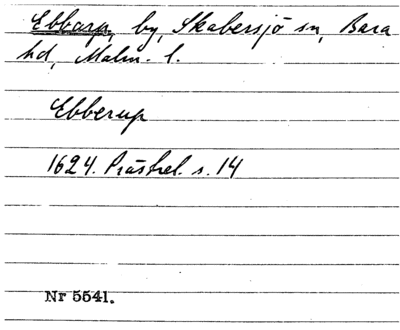 Ebbarp, by, Skabersjö sn, Bara
hd, Malm. l.
Ebberup
1624. Prästrel. s. 14
Nr 5541.